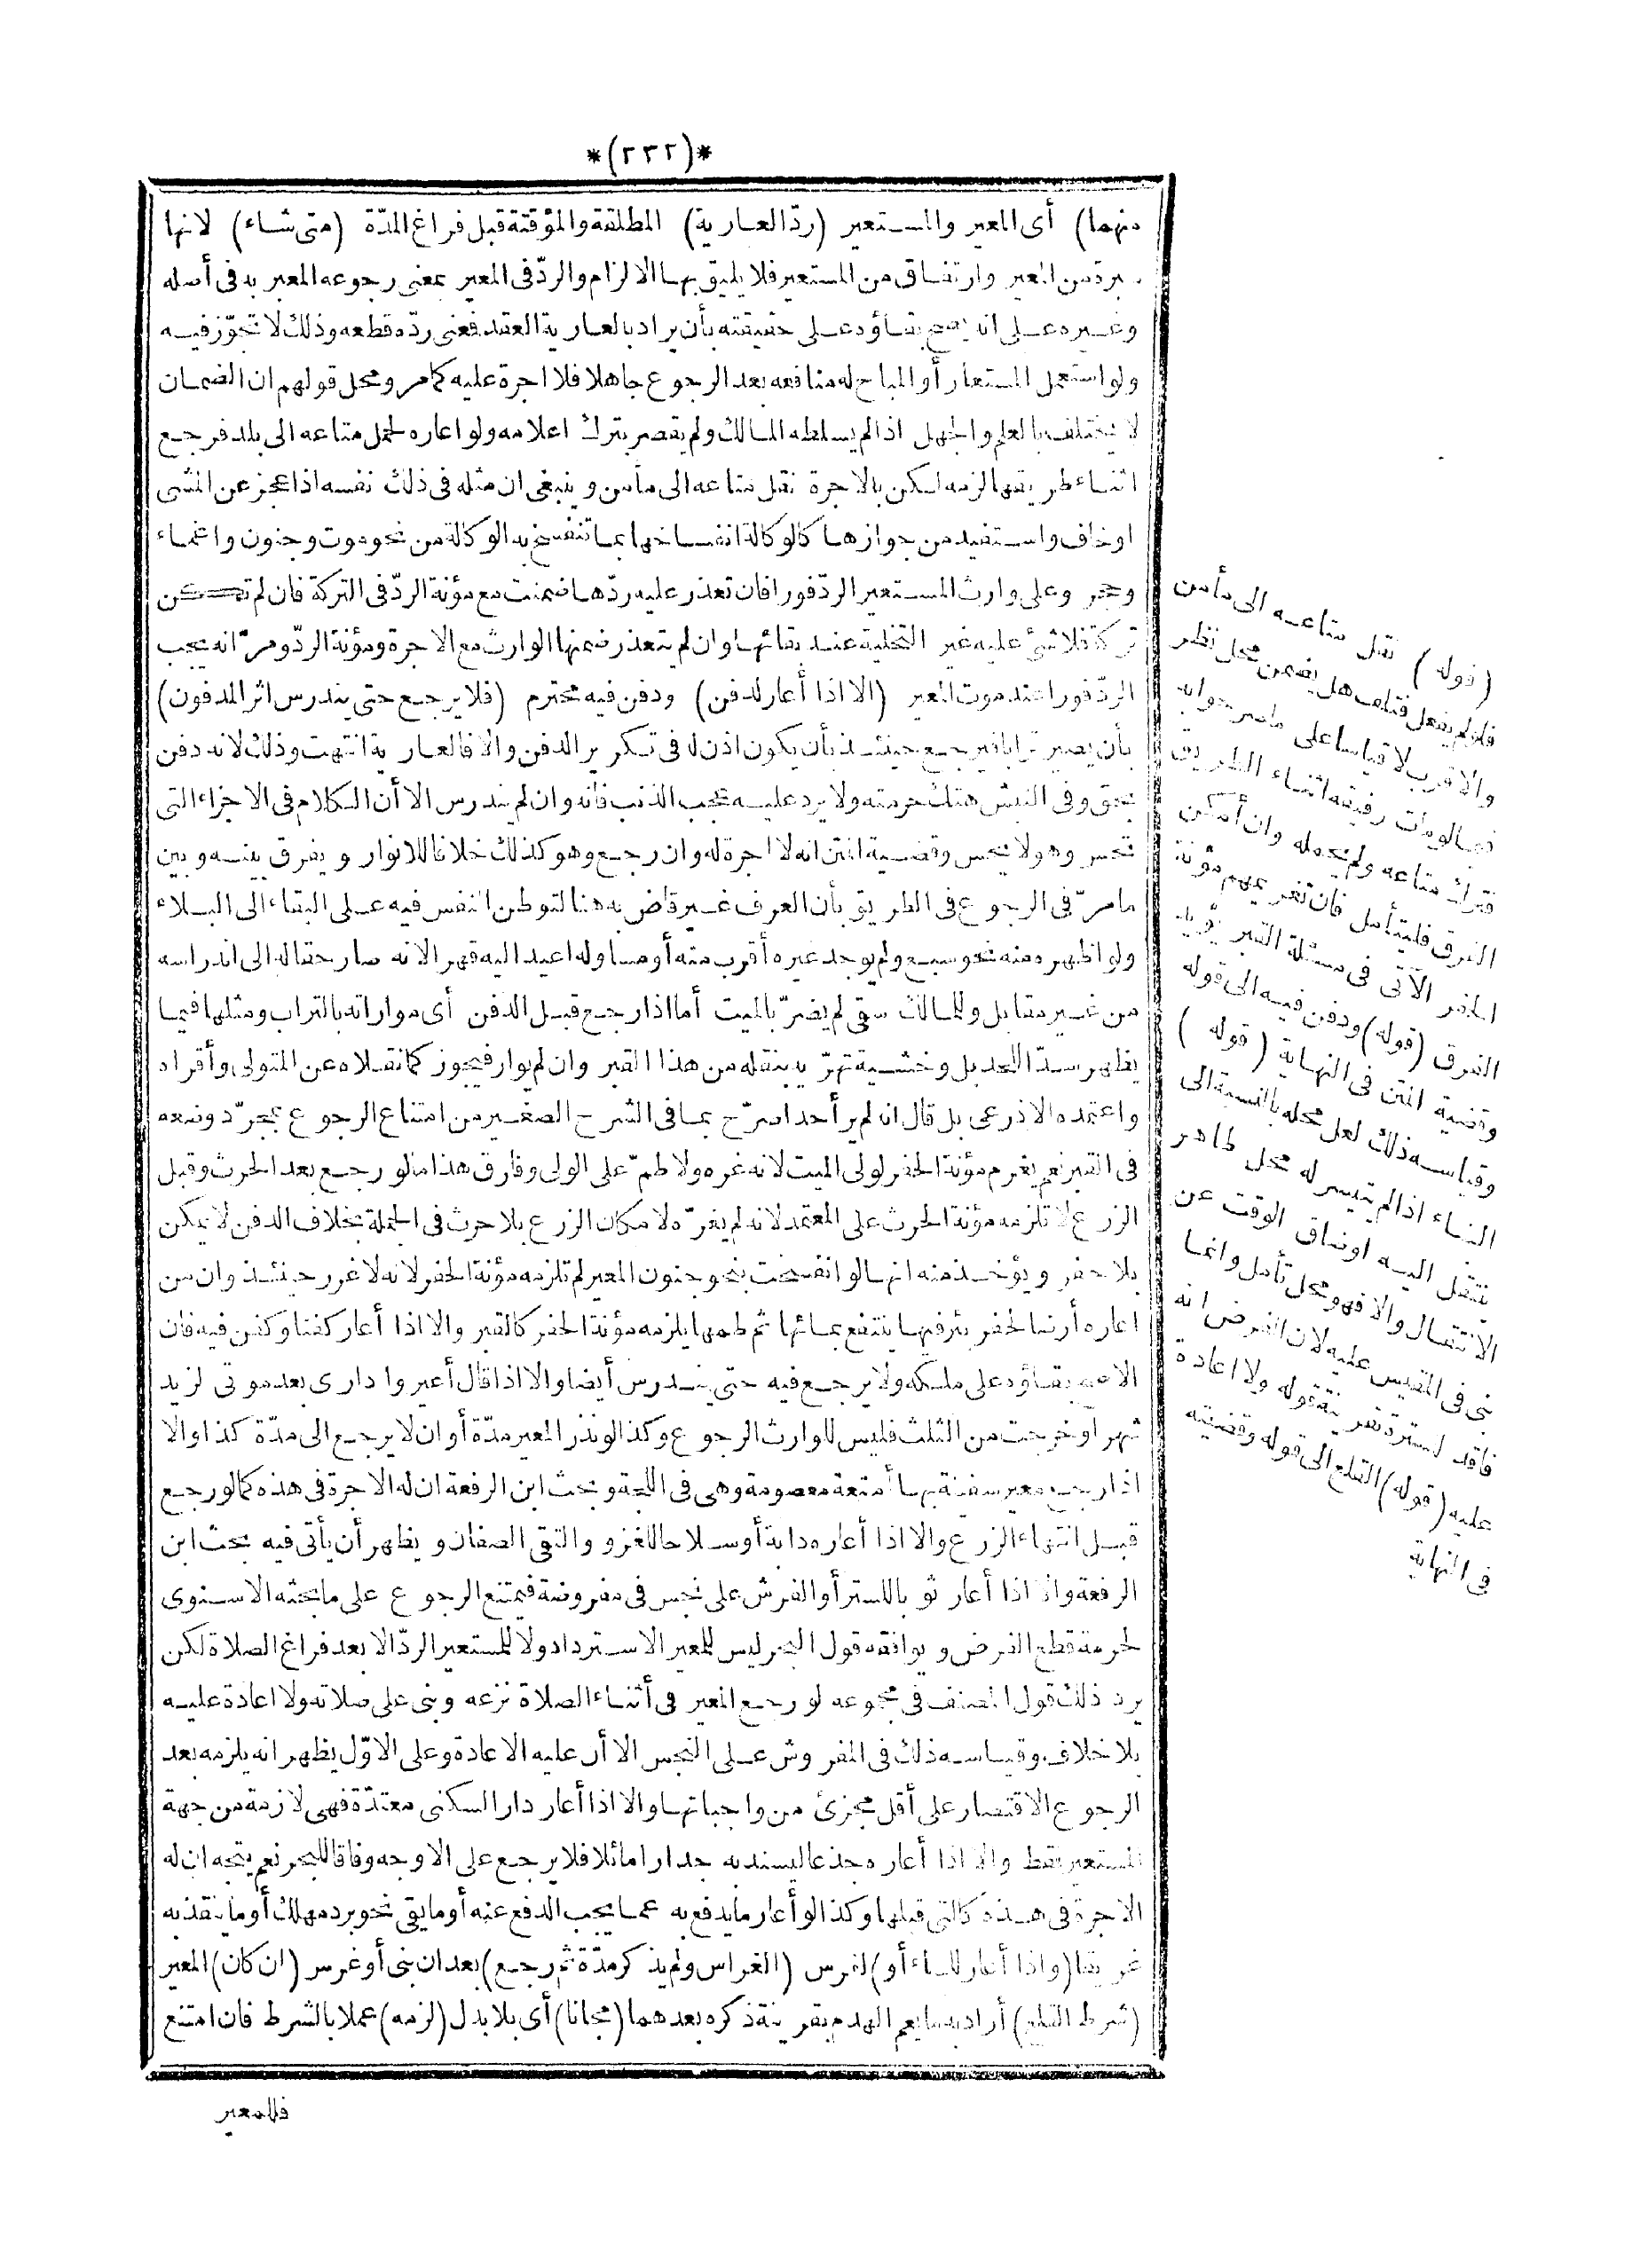 *(٢٣٢)*
منهما) أى المعير والمستعير (ردّ العارية) المطلقة والمؤقتة قبل فراغ المدّة (متى شاء) لانها
مبرة من المعير وارتفاق من المستعير فلا يليق بها الالزام والردّ فى المعير بمعنى رجوعه المعبر به فى أصله
وغيره على انه يصح بقاؤه على حقيقته بأن يراد بالعارية العقد فمعنى ردّه قطعه وذلك لا تجوّز فيه
ولو استعمل المستعار أو المباح له منافعه بعد الرجوع جاهلا فلا اجرة عليه كمامر ومحل قولهم ان الضمان
لا يختلف بالعلم والجهل اذا لم يسلطه المالك ولم يقصر بترك اعلامه ولو اعاره لحمل متاعه الى بلد فرجع
اثناء طريقها لزمه لكن بالاجرة نقل متاعه الى مأمن وينبغى ان مثله فى ذلك نفسه اذا عجز عن المشى
اوخاف واستفيد من جوازها كالوكالة انفساخها بما تنفسخ به الوكالة من نحو موت وجنون واغماء
وحجر وعلى وارث المستعير الردّ فورا فان تعذر عليه ردّها ضمنت مع مؤنة الردّ فى التركة فان لم تكن
تركة فلا شئ عليه غير التخلية عند بقائها وان لم يتعذر ضمنها الوارث مع الاجرة ومؤنة الردّ ومرّ انه يجب
الردّ فورا عند موت المعير (الا اذا أعار لدفن) ودفن فيه محترم (فلا يرجع حتى يندرس اثر المدفون)
بأن يصير ترابا فيرجع حينئذ بأن يكون اذن له فى تكرير الدفن والا فالعارية انتهت وذلك لانه دفن
بحق وفى النبش هتك حرمته ولا يرد عليه عجب الذنب فانه وان لم يندرس الا أن الكلام فى الاجزاء التى
تحس وهو لا يحس وقضية المتن انه لا اجرة له وان رجع وهو كذلك خلافا للانوار ويفرق بينه وبين
مامرّ فى الرجوع فى الطريق بأن العرف غير قاض به هنا لتوطن النفس فيه على البقاء الى البلاء
ولو اظهره منه نحو سبع ولم يوجد غيره أقرب منه أو مساو له اعيد اليه قهرا لانه صار حقا له الى اندراسه
من غير مقابل وللمالك سقى لم يضرّ بالميت أما اذا رجع قبل الدفن أى مواراته بالتراب ومثلها فيما
يظهر سدّ اللحد بل وخشية تهرّيه بنقله من هذا القبر وان لم يوار فيجوز كمانقلاه عن المتولى وأقراه
واعتمده الاذرعى بل قال انه لم ير أحدا صرّح بمافى الشرح الصغير من امتناع الرجوع بمجرّد وضعه
فى القبر نعم يغرم مؤنة الحفر لولى الميت لانه غره ولا طمّ على الولى وفارق هذا مالو رجع بعد الحرث وقبل
الزرع لا تلزمه مؤنة الحرث على المعتمد لانه لم يغرّه لامكان الزرع بلا حرث فى الجملة بخلاف الدفن لا يمكن
بلا حفر ويؤخذ منه انها لو انفسخت بنحو جنون المعير لم تلزمه مؤنة الحفر لانه لا غرر حينئذ وان من
اعاره أرضا لحفر بئر فيها ينتفع بمائها ثم طمها يلزمه مؤنة الحفر كالقبر والا اذا أعار كفنا وكفن فيه فان
الاصح بقاؤه على ملكه ولا يرجع فيه حتى يندرس أيضا والا اذا قال أعيروا دارى بعد موتى لزيد
شهرا وخرجت من الثلث فليس للوارث الرجوع وكذا لو نذر المعير مدّة أوان لا يرجع الى مدّة كذا والا
اذا رجع معير سفينة بها أمتعة معصومة وهى فى اللجة وبحث ابن الرفعة ان له الاجرة فى هذه كمالو رجع
قبل انتهاء الزرع والا اذا أعاره دابة أو سلاحا للغزو والتقى الصفان ويظهر أن يأتى فيه بحث ابن
الرفعة والا اذا أعار ثوبا للستر أو الفرش على نجس فى مفروضة فيمتنع الرجوع على مابحثه الاسنوى
لحرمة قطع الفرض ويوافقه قول البحر ليس للمعير الاسترداد ولا للمستعير الردّ الا بعد فراغ الصلاة لكن
يرد ذلك قول المصنف فى مجموعه لو رجع المعير فى أثناء الصلاة نزعه وبنى على صلاته ولا اعادة عليه
بلا خلاف وقياسه ذلك فى المفروش على النجس الا أن عليه الاعادة وعلى الاوّل يظهر انه يلزمه بعد
الرجوع الاقتصار على أقل مجزئ من واجباتها والا اذا أعار دار السكنى معتدّة فهى لازمة من جهة
المستعير فقط والا اذا أعاره جذعا ليسند به جدارا مائلا فلا يرجع على الاوجه وفاقا للبحر نعم يتجه ان له
الاجرة فى هذه كالتى قبلها وكذا لو أعار مايدفع به عما يجب الدفع عنه أو مايقى نحو برد مهلك أو ماينقذ به
غريقا (واذا أعار للبناء أو) لغرس (الغراس ولم يذكر مدّة ثم رجع) بعد ان بنى أو غرس (ان كان) المعير
(شرط القلع) أراد به مايعم الهدم بقرينة ذكره بعدهما (مجانا) أى بلا بدل (لزمه) عملا بالشرط فان امتنع
فللمعير
(قوله) نقل متاعه الى مأمن
فلو لم يفعل فتلف هل يضمن محل نظر
والاقرب لا قياسا على مامر جوابه
فيمالو مات رفيقه اثناء الطريق
فترك متاعه ولم يحمله وان أمكن
الفرق فليتأمل فان تغريمهم مؤنة
الحفر الآتى فى مسئلة القبر يؤيد
الفرق (قوله) ودفن فيه الى قوله
وقضية المتن فى النهاية (قوله)
وقياسه ذلك لعل محله بالنسبة الى
البناء اذا لم يتيسر له محل طاهر
ينتقل اليه اوضاق الوقت عن
الانتقال والا فهو محل تأمل وانما
بنى فى المقيس عليه لان الفرض انه
فاقد لسترة بقرينة قوله ولا اعادة
عليه (قوله) القلع الى قوله وقضيته
فى النهاية